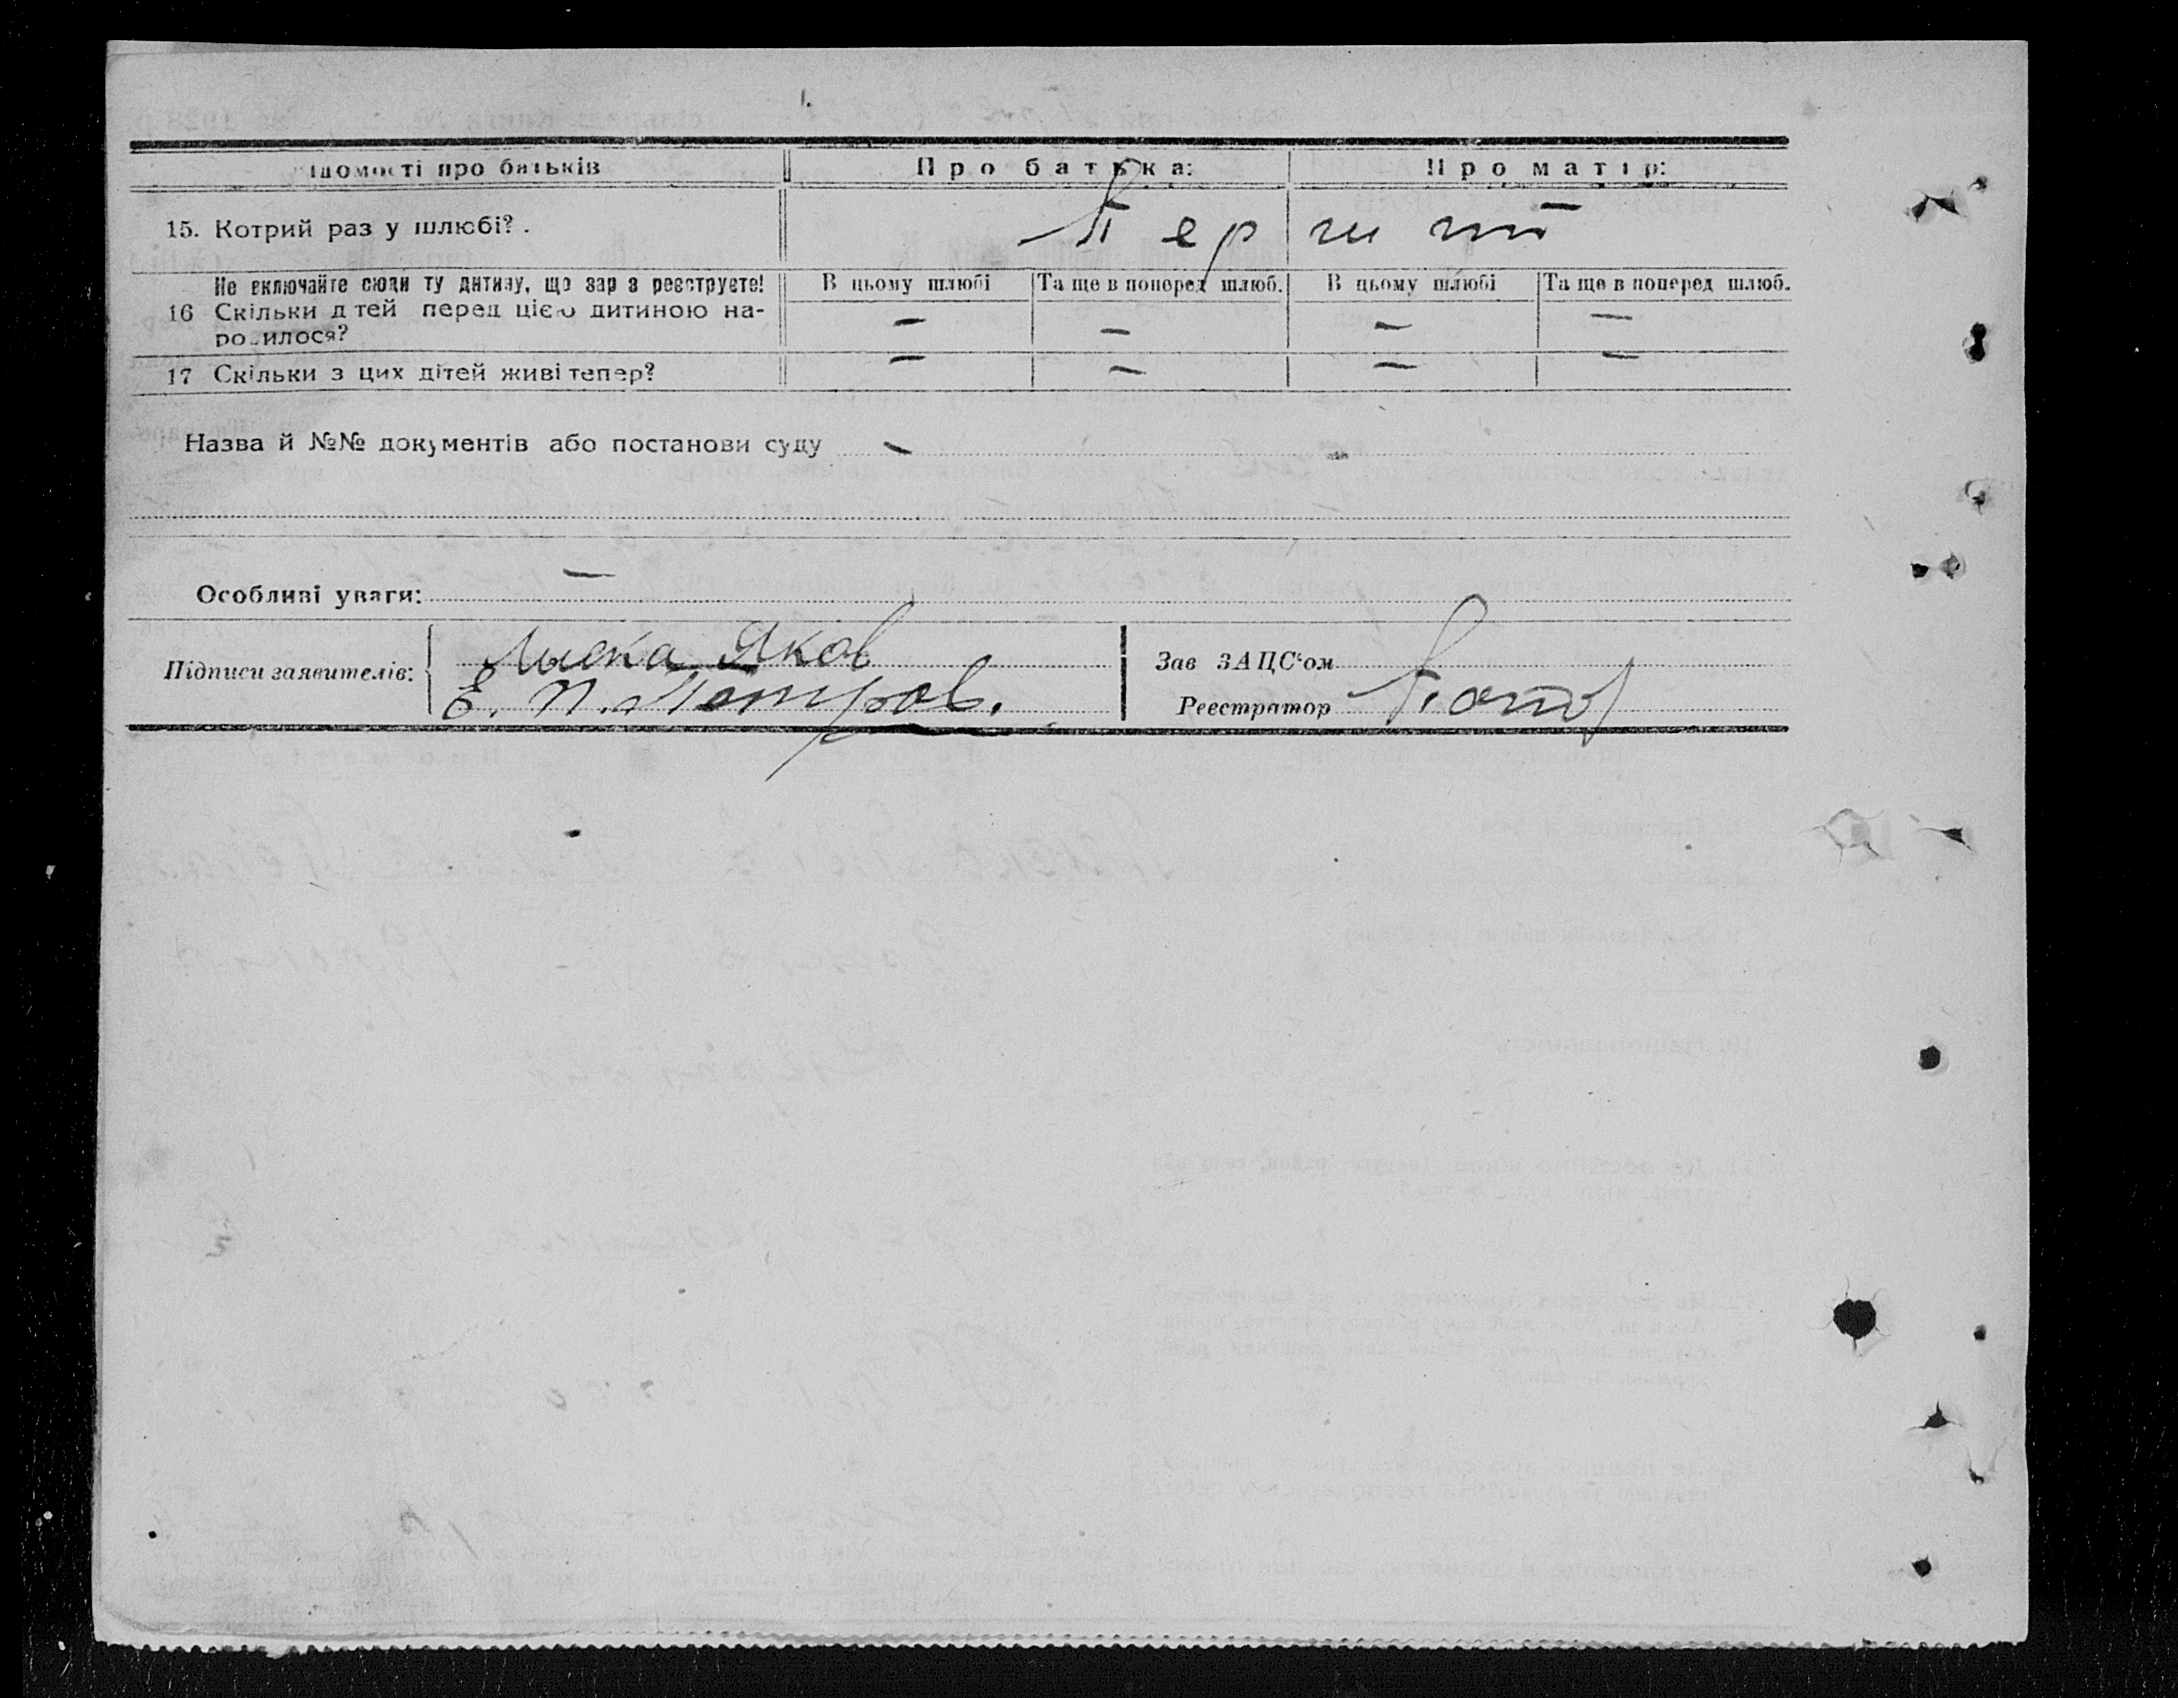 ідомості про батьків
Про батька:
Про матір:
15. Котрий раз у шлюбі?.
Перший
Не включайте сюди ту дитину, що зараз реєструєте!
В цьому шлюбі
Та ще в поперед шлюб.
В цьому шлюбі
Та ще в поперед шлюб.
16 Скільки дітей перед цією дитиною на-
родилося?
— — — —
17 Скільки з цих дітей живі тепер?
— — — —
Назва й №№ документів або постанови суду —
Особливі уваги: —
Підписи заявителів:
Лыска Яков
Е. П. Петров.
Зав ЗАЦС'ом
Реєстратор